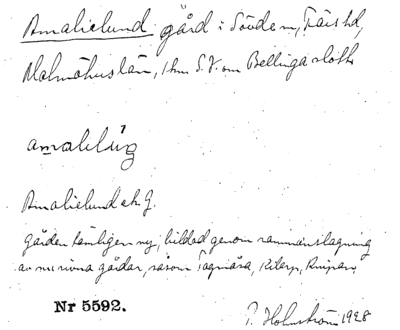 Amalielund gård i Sövde sn, Färs hd,
Malmöhus län, 1 km S.V. om Bellinga slott.
amalilúŋ
Amalielund ek. J.
Gården tämligen ny, bildad genom sammanslagning
av nu rivna gårdar, såsom Tagmåsa, Kilarp,
Nr 5592.
P. Holmström 1928